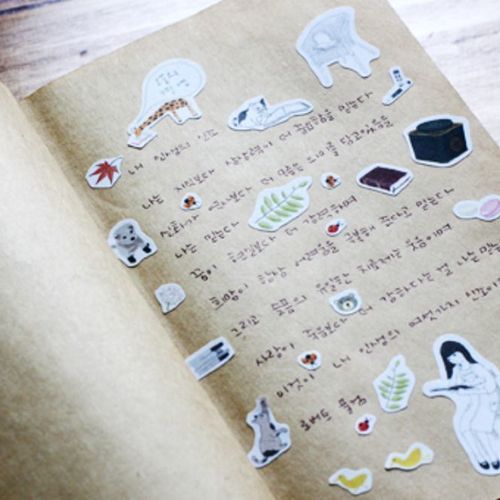 내 인생의 신조
나는 지식보다 상상력이 더 중요함을 믿는다
신화가 역사보다 더 많은 의미를 담고있음을
나는 믿는다
꿈이 현실보다 더 강력하며
희망이 항상 어려움을 극복해 준다고 믿는다
그리고 슬픔의 유일한 치료제는 웃음이며
사랑이 죽음보다 더 강하다는 걸 나는 믿는다
이것이 내 인생의 여섯가지 신조이
로버트 풀검